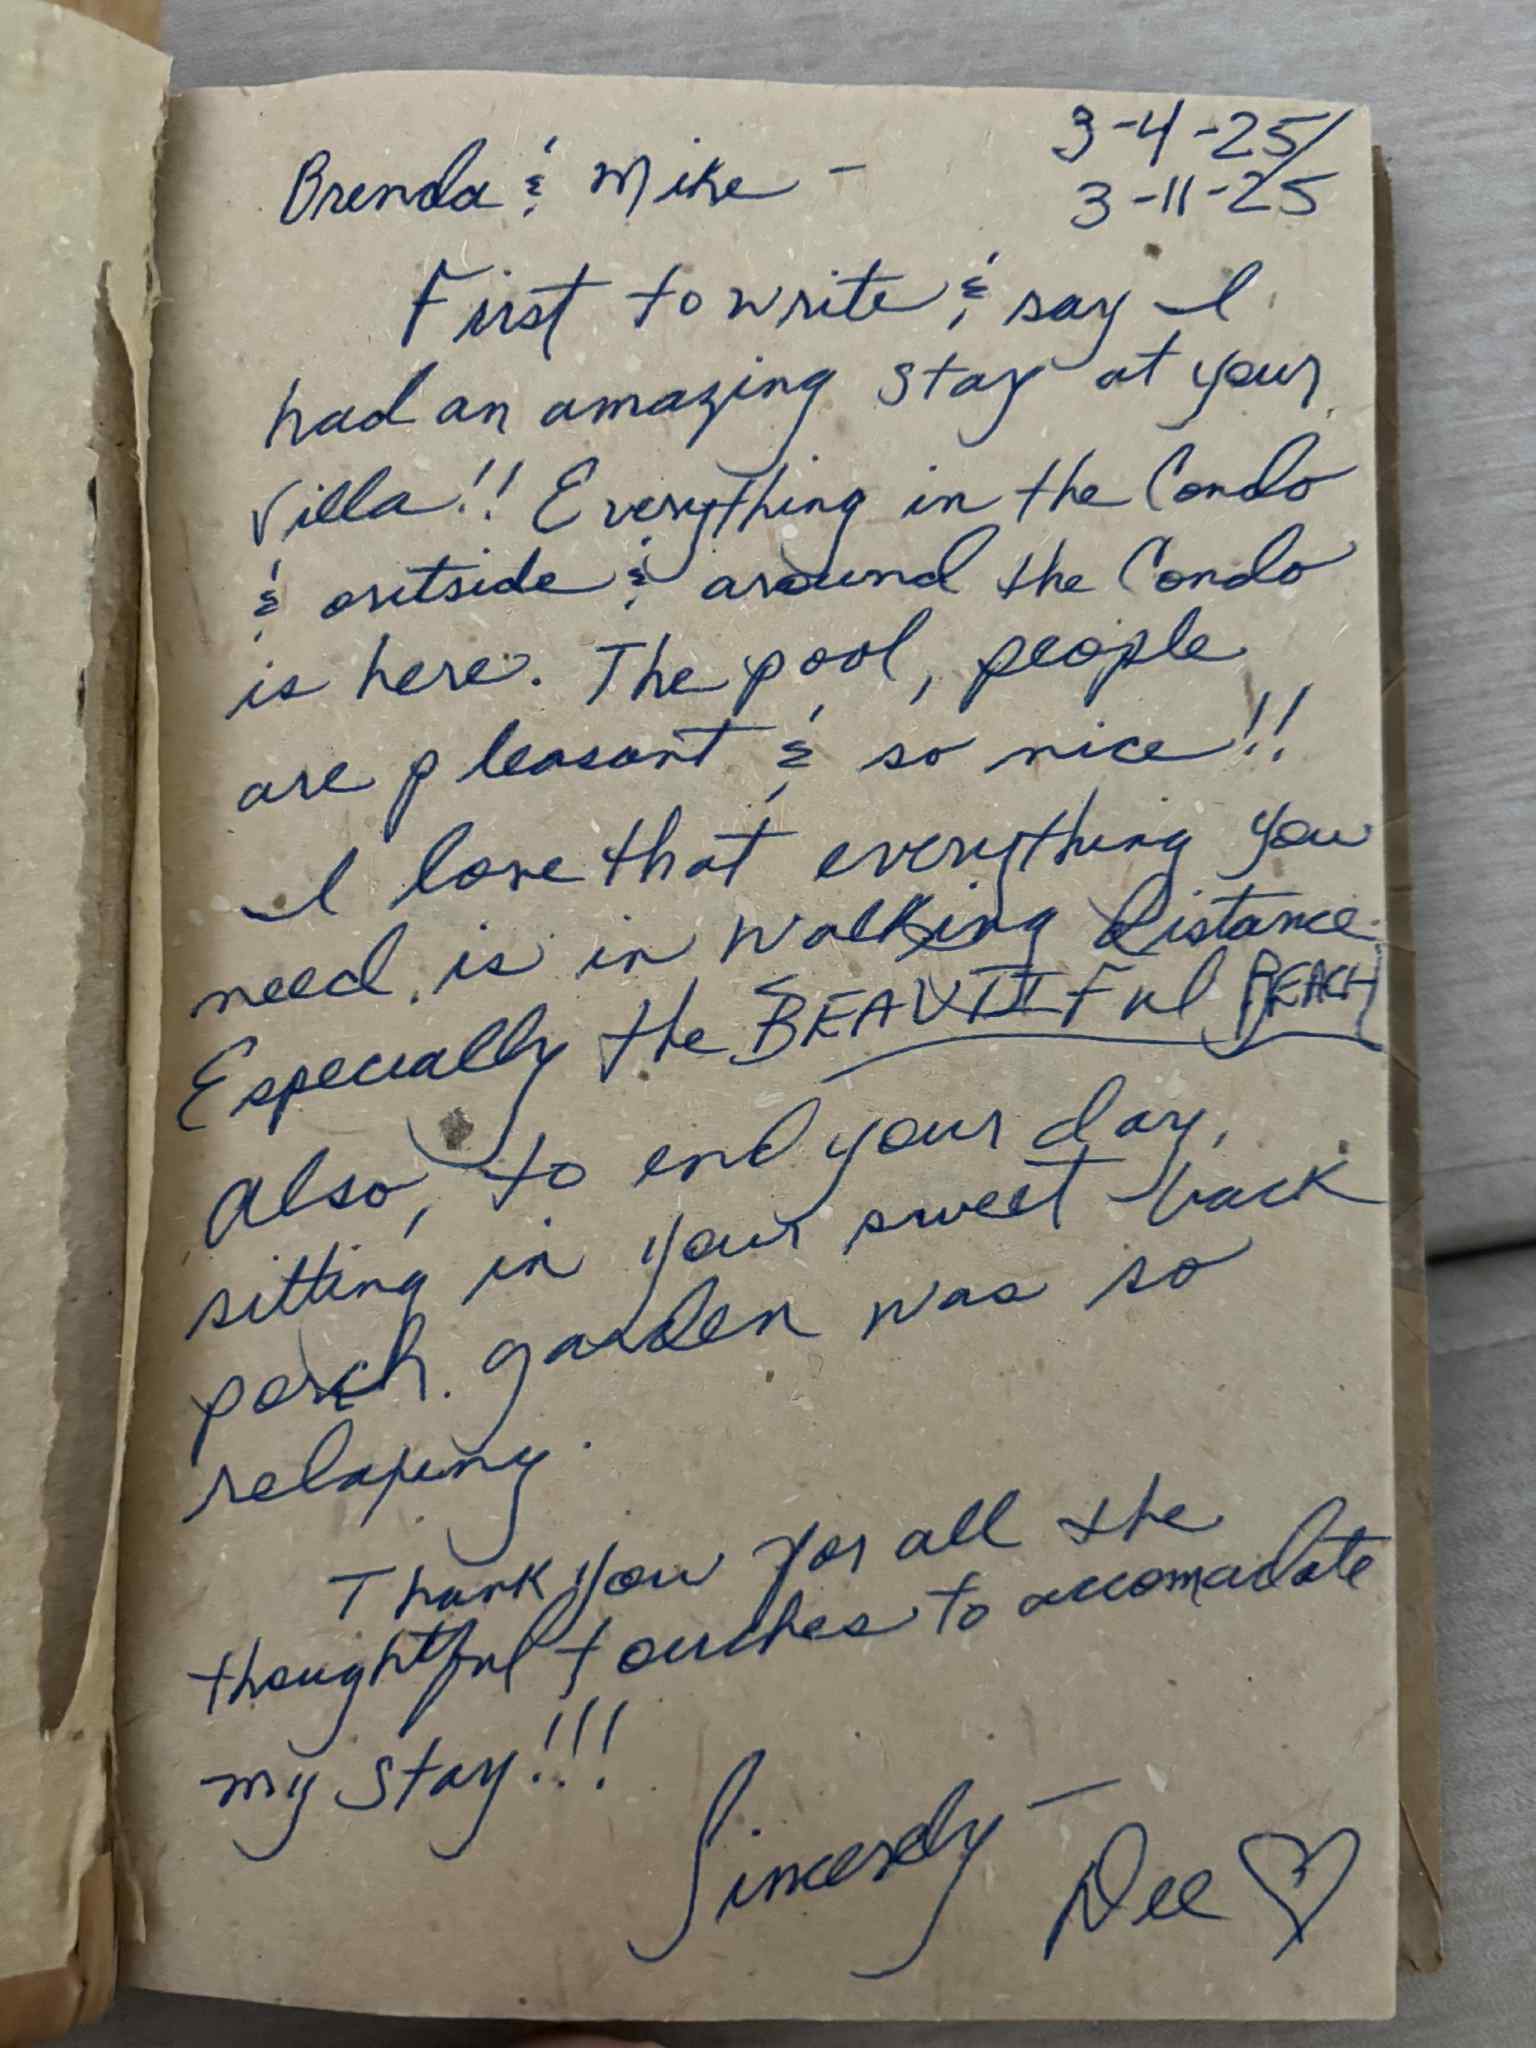 3-4-25/
Brenda & Mike -
3-11-25
First to write & say I
had an amazing stay at your
Villa!! Everything in the Condo
& outside & around the Condo
is here. The pool, people
are pleasant & so nice!!
I love that everything you
need is in walking distance.
Especially the BEAUTIFul BEACH
Also, to end your day,
sitting in your sweet back
porch garden was so
relaxing.
Thank you for all the
thoughtful touches to accomadate
my stay!!!
Sincerely -
Dee ♡